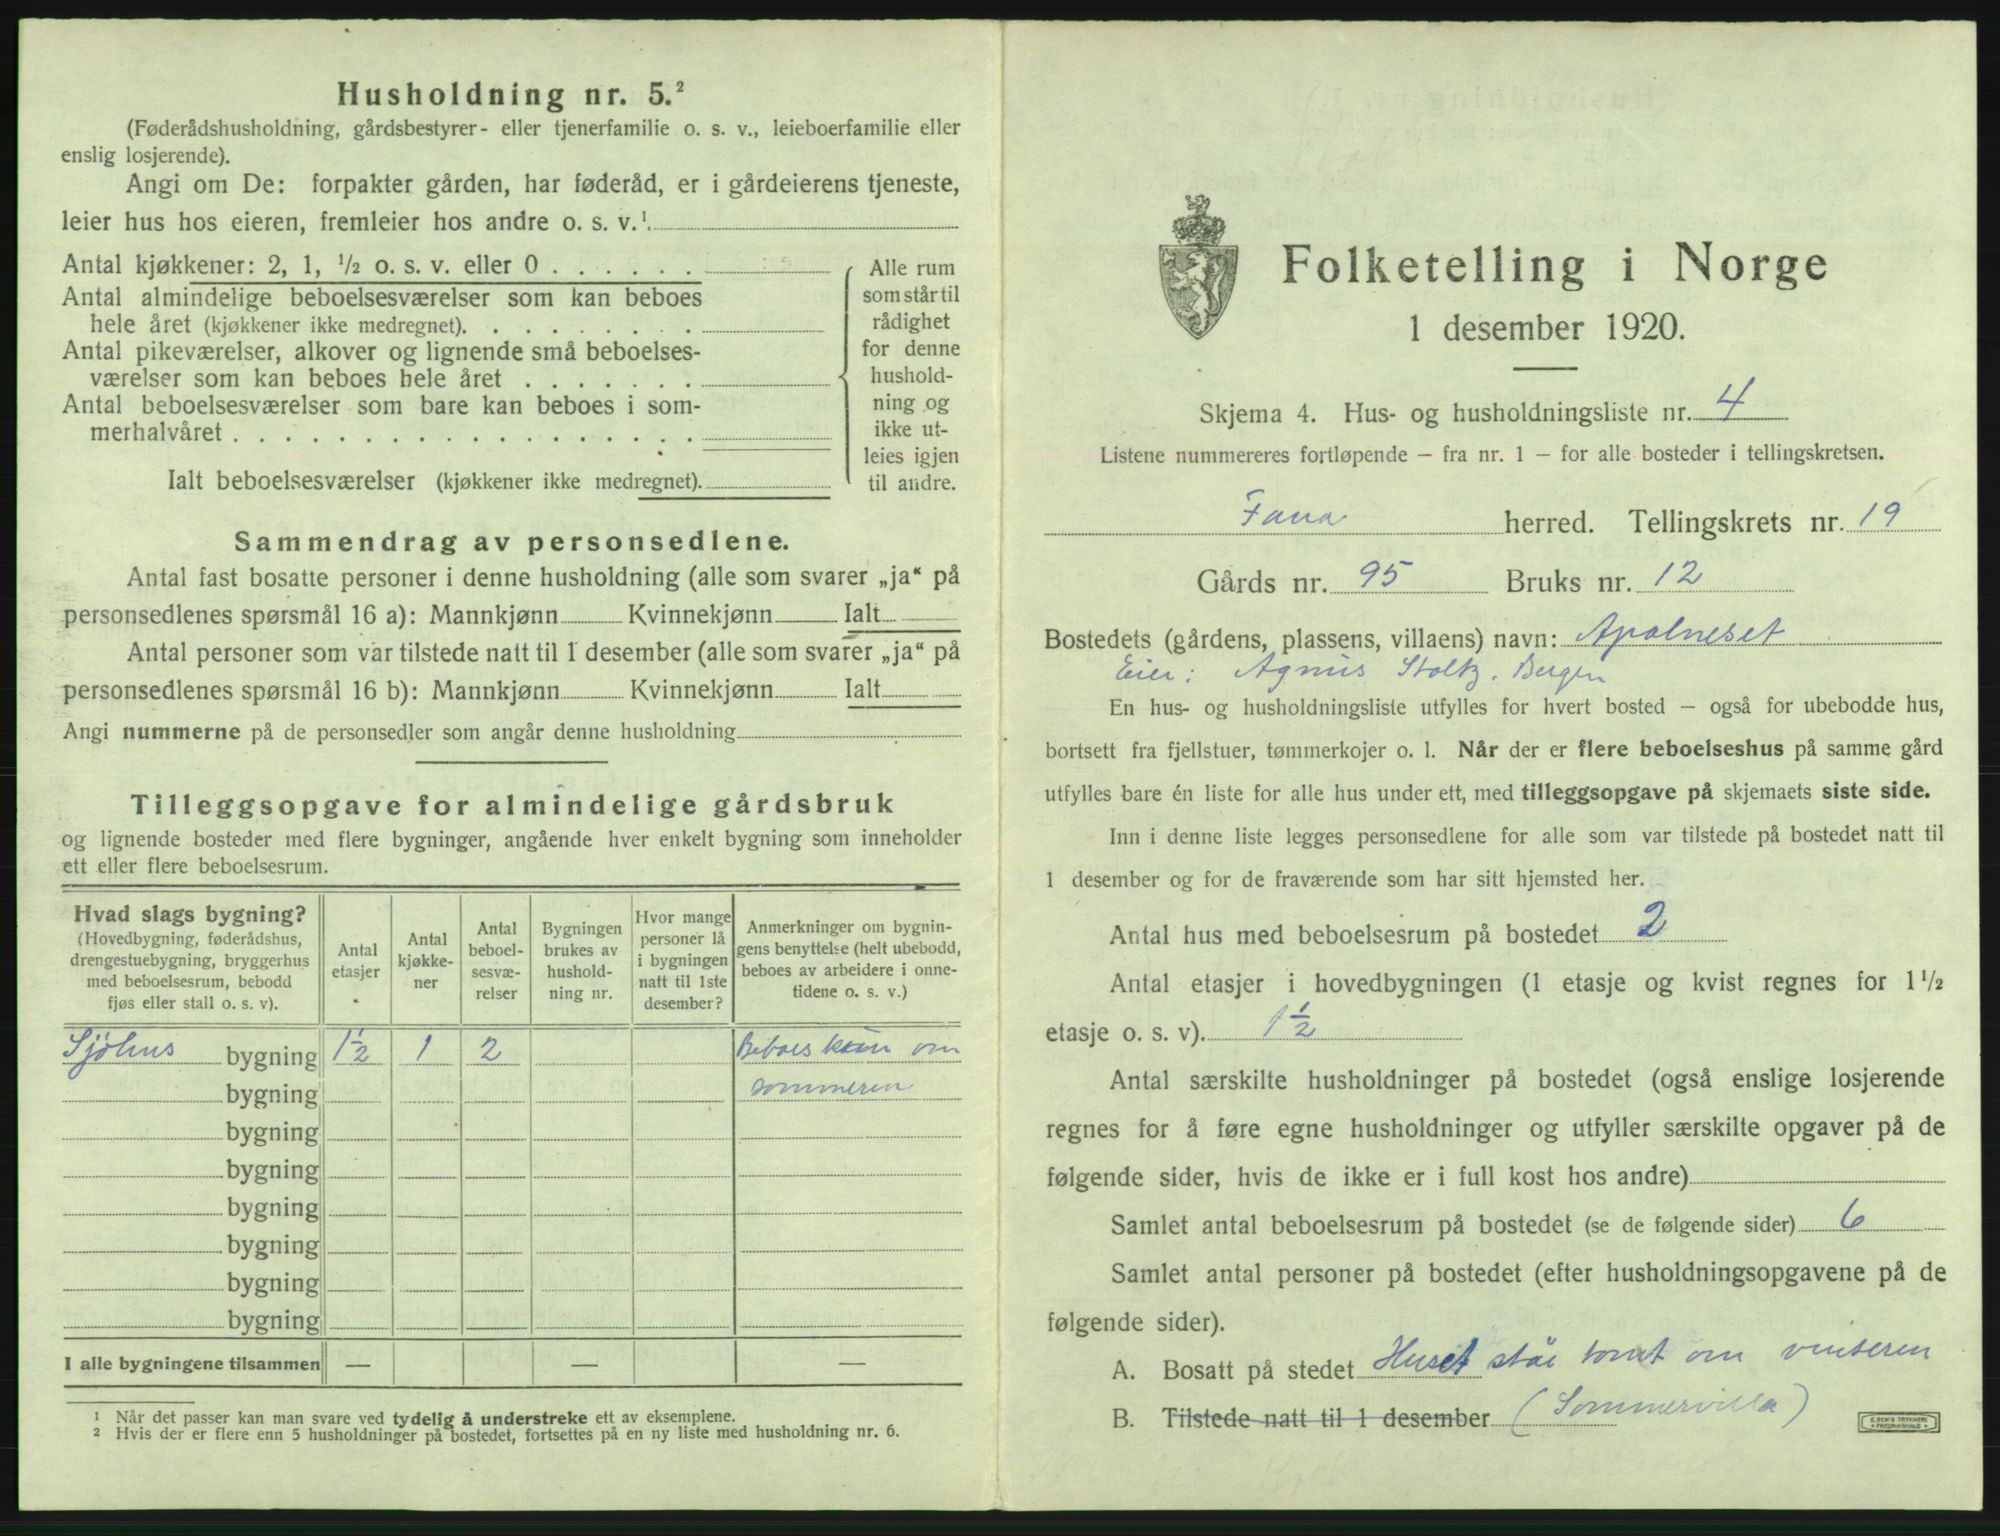 Husholdning nr. 5.²
(Føderådshusholdning, gårdsbestyrer- eller tjenerfamilie o. s. v., leieboerfamilie eller
enslig losjerende).
Angi om De: forpakter gården, har føderåd, er i gårdeierens tjeneste,
leier hus hos eieren, fremleier hos andre o. s. v.¹
Antal kjøkkener: 2, 1, ½ o. s. v. eller 0
Antal almindelige beboelsesværelser som kan beboes
hele året (kjøkkener ikke medregnet).
Antal pikeværelser, alkover og lignende små beboelses-
værelser som kan beboes hele året
Antal beboelsesværelser som bare kan beboes i som-
merhalvåret
Ialt beboelsesværelser (kjøkkener ikke medregnet).
Alle rum
som står til
rådighet
for denne
hushold-
ning og
ikke ut-
leies igjen
til andre.
Sammendrag av personsedlene.
Antal fast bosatte personer i denne husholdning (alle som svarer „ja“ på
personsedlenes spørsmål 16 a): Mannkjønn Kvinnekjønn Ialt
Antal personer som var tilstede natt til 1 desember (alle som svarer „ja“ på
personsedlenes spørsmål 16 b): Mannkjønn Kvinnekjønn Ialt
Angi nummerne på de personsedler som angår denne husholdning
Tilleggsopgave for almindelige gårdsbruk
og lignende bosteder med flere bygninger, angående hver enkelt bygning som inneholder
ett eller flere beboelsesrum.
Hvad slags bygning?
(Hovedbygning, føderådshus,
drengestuebygning, bryggerhus
med beboelsesrum, bebodd
fjøs eller stall o. s. v).
Antal
etasjer
Antal
kjøkke-
ner
Antal
beboel-
sesvæ-
relser
Bygningen
brukes av
hushold-
ning nr.
Hvor mange
personer lå
i bygningen
natt til 1ste
desember?
Anmerkninger om bygnin-
gens benyttelse (helt ubebodd,
beboes av arbeidere i onne-
tidene o. s. v.)
Sjöhus bygning 1½ 1 2 Beboes kun om
bygning sommeren
bygning
bygning
bygning
bygning
bygning
bygning
I alle bygningene tilsammen — — —
¹ Når det passer kan man svare ved tydelig å understreke ett av eksemplene.
² Hvis der er flere enn 5 husholdninger på bostedet, fortsettes på en ny liste med husholdning nr. 6.
Folketelling i Norge
1 desember 1920.
Skjema 4. Hus- og husholdningsliste nr. 4
Listene nummereres fortløpende — fra nr. 1 — for alle bosteder i tellingskretsen.
Fana herred. Tellingskrets nr. 19
Gårds nr. 95 Bruks nr. 12
Bostedets (gårdens, plassens, villaens) navn: Apalneset
Eier: Agnus Stoltz. Bergen
En hus- og husholdningsliste utfylles for hvert bosted — også for ubebodde hus,
bortsett fra fjellstuer, tømmerkojer o. l. Når der er flere beboelseshus på samme gård
utfylles bare én liste for alle hus under ett, med tilleggsopgave på skjemaets siste side.
Inn i denne liste legges personsedlene for alle som var tilstede på bostedet natt til
1 desember og for de fraværende som har sitt hjemsted her.
Antal hus med beboelsesrum på bostedet 2
Antal etasjer i hovedbygningen (1 etasje og kvist regnes for 1½
etasje o. s. v). 1½
Antal særskilte husholdninger på bostedet (også enslige losjerende
regnes for å føre egne husholdninger og utfyller særskilte opgaver på de
følgende sider, hvis de ikke er i full kost hos andre)
Samlet antal beboelsesrum på bostedet (se de følgende sider) 6
Samlet antal personer på bostedet (efter husholdningsopgavene på de
følgende sider).
A. Bosatt på stedet Huset står tomt om vinteren
B. Tilstede natt til 1 desember (Sommervilla)
E. SEM'S TRYKKERI
FREDRIKSHALD